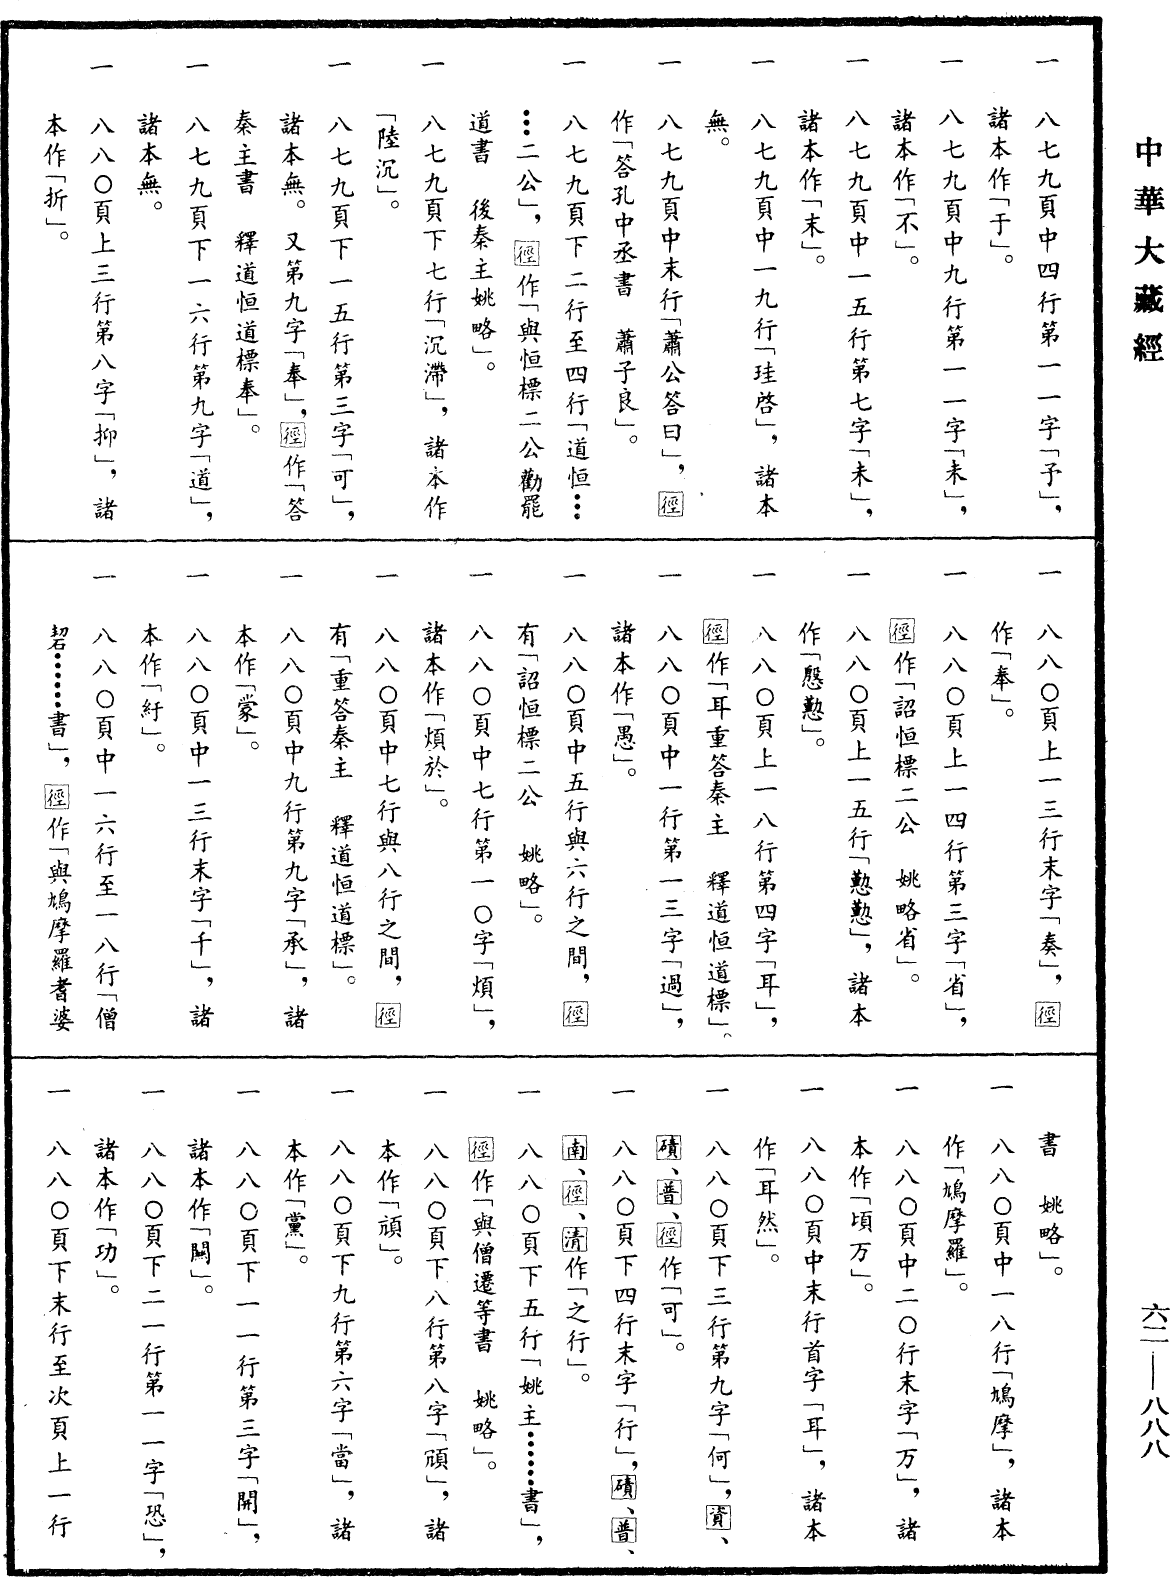 中華大藏經
一　八七九頁中四行第一一字「予」，
諸本作「于」。
一　八七九頁中九行第一一字「未」，
諸本作「不」。
一　八七九頁中一五行第七字「未」，
諸本作「末」。
一　八七九頁中一九行「珪啓」，諸本
無。
一　八七九頁中末行「蕭公答曰」，徑
作「答孔中丞書　蕭子良」。
一　八七九頁下二行至四行「道恒…
…二公」，徑作「與恒標二公勸罷
道書　後秦主姚略」。
一　八七九頁下七行「沉滯」，諸本作
「陸沉」。
一　八七九頁下一五行第三字「可」，
諸本無。又第九字「奉」，徑作「答
秦主書　釋道恒道標奉」。
一　八七九頁下一六行第九字「道」，
諸本無。
一　八八〇頁上三行第八字「抑」，諸
本作「折」。
一　八八〇頁上一三行末字「奏」，徑
作「奉」。
一　八八〇頁上一四行第三字「省」，
徑作「詔恒標二公　姚略省」。
一　八八〇頁上一五行「懃懃」，諸本
作「慇懃」。
一　八八〇頁上一八行第四字「耳」，
徑作「耳重答秦主　釋道恒道標」。
一　八八〇頁中一行第一三字「過」，
諸本作「愚」。
一　八八〇頁中五行與六行之間，徑
有「詔恒標二公　姚略」。
一　八八〇頁中七行第一〇字「煩」，
諸本作「煩於」。
一　八八〇頁中七行與八行之間，徑
有「重答秦主　釋道恒道標」。
一　八八〇頁中九行第九字「承」，諸
本作「蒙」。
一　八八〇頁中一三行末字「千」，諸
本作「紆」。
一　八八〇頁中一六行至一八行「僧
䂮……書」，徑作「與鳩摩羅耆婆
書　姚略」。
一　八八〇頁中一八行「鳩摩」，諸本
作「鳩摩羅」。
一　八八〇頁中二〇行末字「万」，諸
本作「頃万」。
一　八八〇頁中末行首字「耳」，諸本
作「耳然」。
一　八八〇頁下三行第九字「何」，資、
磧、普、徑作「可」。
一　八八〇頁下四行末字「行」，磧、普、
南、徑、清作「之行」。
一　八八〇頁下五行「姚主……書」，
徑作「與僧遷等書　姚略」。
一　八八〇頁下八行第八字「頑」，諸
本作「頑」。
一　八八〇頁下九行第六字「當」，諸
本作「黨」。
一　八八〇頁下一一行第三字「開」，
諸本作「闢」。
一　八八〇頁下二一行第一一字「恐」，
諸本作「功」。
一　八八〇頁下末行至次頁上一行
六二—八八八